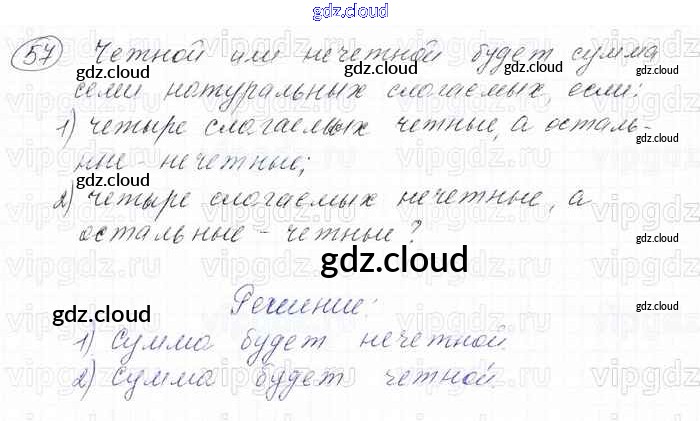 gdz.cloud
57 Четной или нечетной будет сумма
gdz.cloud gdz.cloud gdz.cloud
семи натуральных слагаемых, если:
1) четыре слагаемых четные, а осталь-
gdz.cloud gdz.cloud gdz.cloud
ные - нечетные;
gdz.cloud
2) четыре слагаемых нечетные, а
gdz.cloud gdz.cloud
остальные - четные?
gdz.cloud
Решение:
gdz.cloud gdz.cloud
1) Сумма будет нечетной.
2) Сумма будет четной.